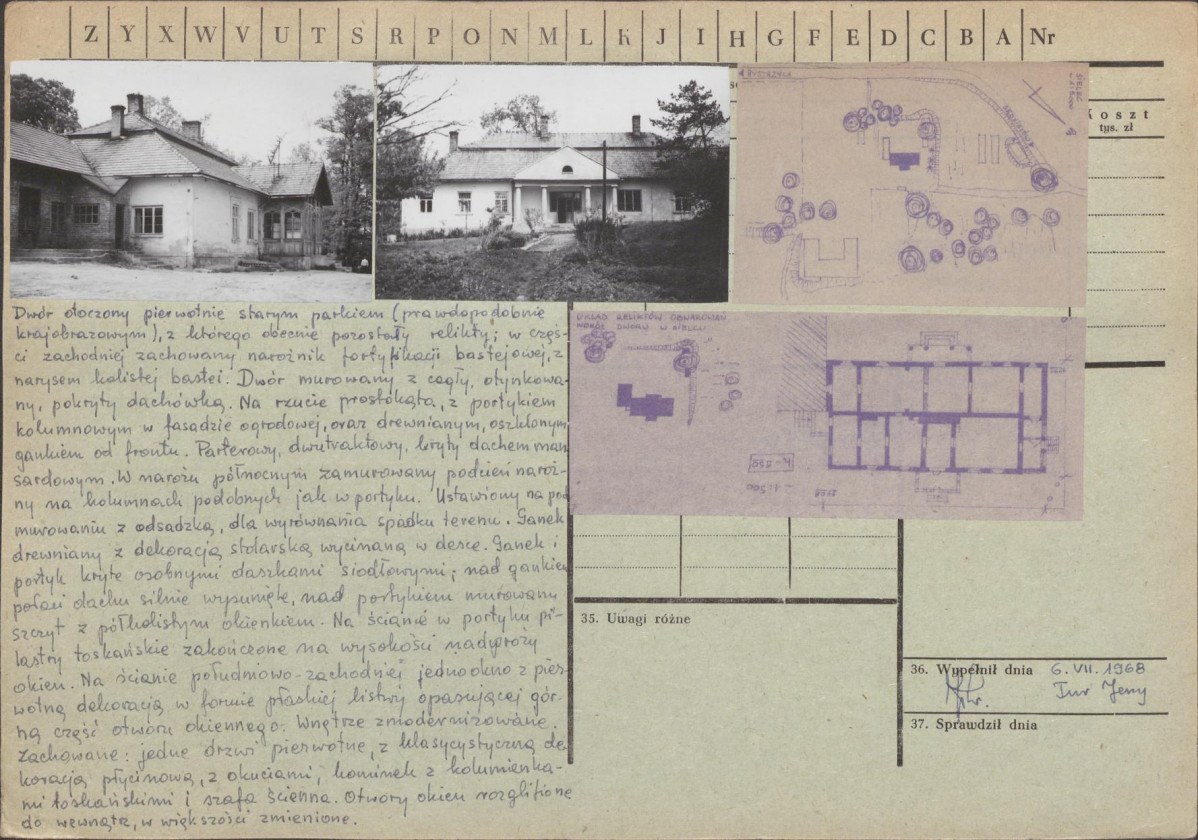 Z Y X W V U T S R P O N M L K J I H G F E D C B A Nr
BYSTRZYCA
SIELEC
~ 1:5000
Koszt
tys. zł
Dwór otoczony pierwotnie starym parkiem (prawdopodobnie
krajobrazowym), z którego obecnie pozostały relikty; w częś-
ci zachodniej zachowany narożnik fortyfikacji bastejowej, z
narysem kolistej bastei. Dwór murowany z cegły, otynkowa-
ny, pokryty dachówką. Na rzucie prostokąta, z portykiem
kolumnowym w fasadzie ogrodowej, oraz drewnianym, oszklonym
gankiem od frontu. Parterowy, dwutraktowy, kryty dachem man
sardowym. W narożu północnym zamurowany podcień naroż-
ny na kolumnach podobnych jak w portyku. Ustawiony na pod
murowaniu z odsadzką, dla wyrównania spadku terenu. Ganek
drewniany z dekoracją stolarską wycinaną w desce. Ganek i
portyk kryte osobnymi daszkami siodłowymi; nad gankiem
połaci dachu silnie wysunięte, nad portykiem murowany
szczyt z półkolistym okienkiem. Na ścianie w portyku pi-
lastry toskańskie zakończone na wysokości nadproży
okien. Na ścianie południowo-zachodniej jedno okno z pier-
wotną dekoracją w formie płaskiej listwy opasującej gór-
ną część otworu okiennego. Wnętrze zmodernizowane.
Zachowane: jedne drzwi pierwotne, z klasycystyczną de
koracją płycinową, z okuciami, kominek z kolumienka-
mi toskańskimi i szafa ścienna. Otwory okien rozglifione
do wewnątrz, w większości zmienione.
UKŁAD RELIKTÓW OBWAROWAŃ
WOKÓŁ DWORU W SIELCU
~ 1:500
35. Uwagi różne
36. Wypełnił dnia 6. VII. 1968
Jerzy
37. Sprawdził dnia